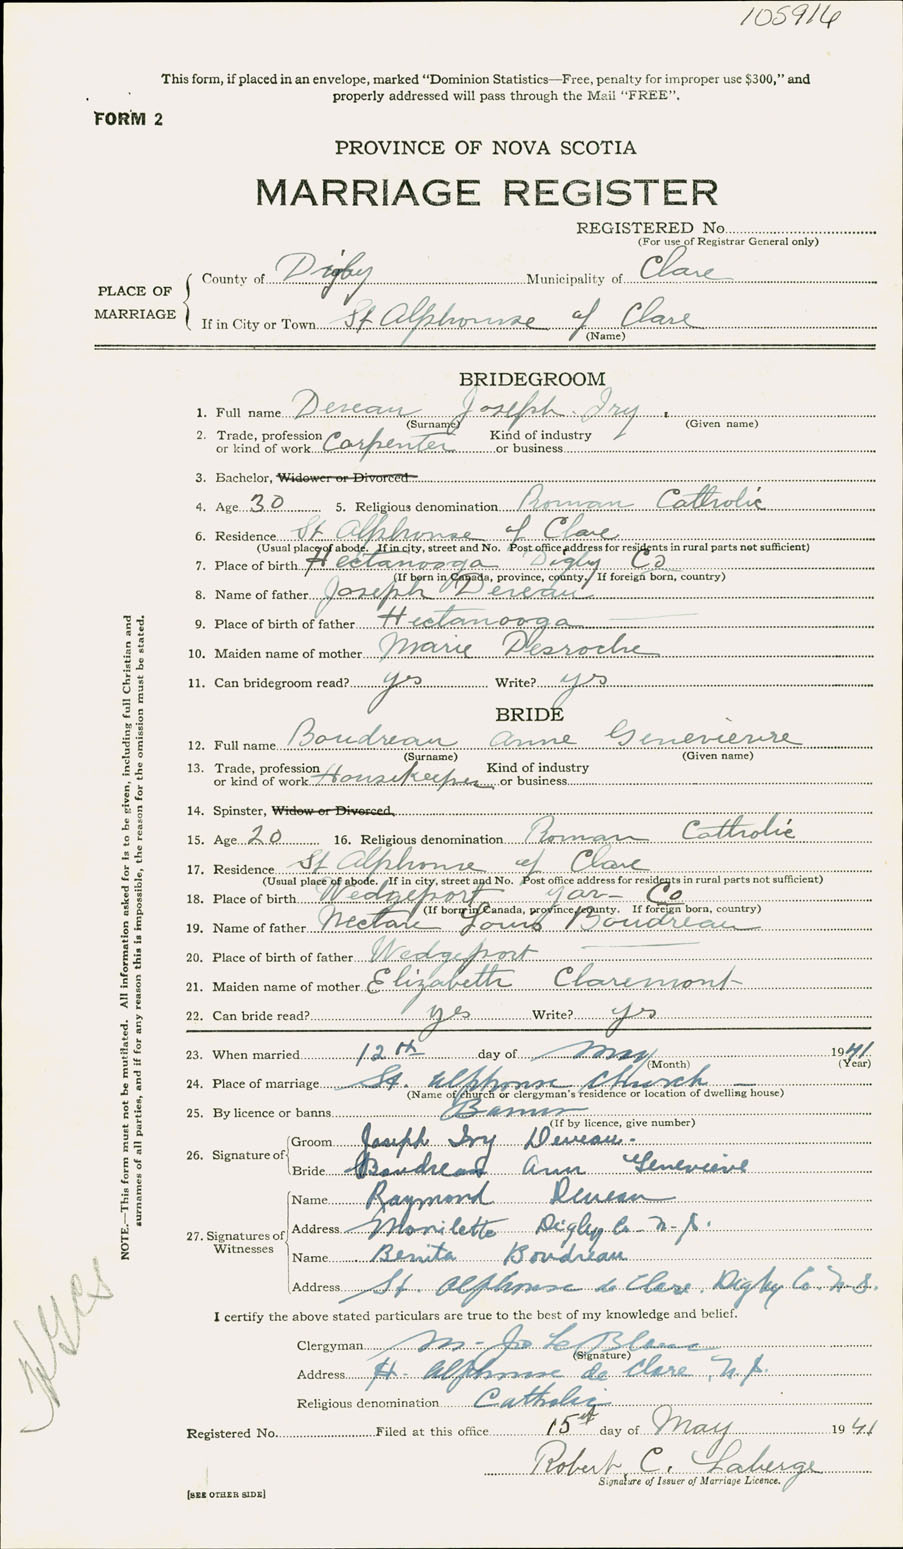 105914
This form, if placed in an envelope, marked "Dominion Statistics—Free, penalty for improper use $300," and
properly addressed will pass through the Mail "FREE".
FORM 2
PROVINCE OF NOVA SCOTIA
MARRIAGE REGISTER
REGISTERED No.
(For use of Registrar General only)
PLACE OF MARRIAGE
County of Digby Municipality of Clare
If in City or Town St Alphonse of Clare
(Name)
BRIDEGROOM
1. Full name Deveau Joseph Ivy
(Surname) (Given name)
2. Trade, profession or kind of work Carpenter Kind of industry or business
3. Bachelor, Widower or Divorced
4. Age 30 5. Religious denomination Roman Catholic
6. Residence St Alphonse of Clare
(Usual place of abode. If in city, street and No. Post office address for residents in rural parts not sufficient)
7. Place of birth Hectanooga Digby Co
(If born in Canada, province, county. If foreign born, country)
8. Name of father Joseph Deveau
9. Place of birth of father Hectanooga
10. Maiden name of mother Marie Desroche
11. Can bridegroom read? yes Write? yes
BRIDE
12. Full name Boudreau Anne Genevieve
(Surname) (Given name)
13. Trade, profession or kind of work Housekeeper Kind of industry or business
14. Spinster, Widow or Divorced
15. Age 20 16. Religious denomination Roman Catholic
17. Residence St Alphonse of Clare
(Usual place of abode. If in city, street and No. Post office address for residents in rural parts not sufficient)
18. Place of birth Wedgeport Yar- Co
(If born in Canada, province, county. If foreign born, country)
19. Name of father Nectare Louis Boudreau
20. Place of birth of father Wedgeport
21. Maiden name of mother Elizabeth Claremont
22. Can bride read? yes Write? yes
23. When married 12th day of May 1941
(Month) (Year)
24. Place of marriage St. Alphonse Church
(Name of church or clergyman's residence or location of dwelling house)
25. By licence or banns Banns
(If by licence, give number)
26. Signature of
Groom Joseph Ivy Deveau.
Bride Boudreau Ann Genevieve
27. Signatures of Witnesses
Name Raymond Deveau
Address Digby Co. N.S.
Name Benita Boudreau
Address St. Alphonse de Clare, Digby Co. N.S.
I certify the above stated particulars are true to the best of my knowledge and belief.
Clergyman Le Blanc
(Signature)
Address St. Alphonse de Clare, N.S.
Religious denomination Catholic
Registered No. Filed at this office 15th day of May 1941
Robert C. Laberge
Signature of Issuer of Marriage Licence.
[SEE OTHER SIDE]
NOTE.—This form must not be mutilated. All information asked for is to be given, including full Christian and
surnames of all parties, and if for any reason this is impossible, the reason for the omission must be stated.